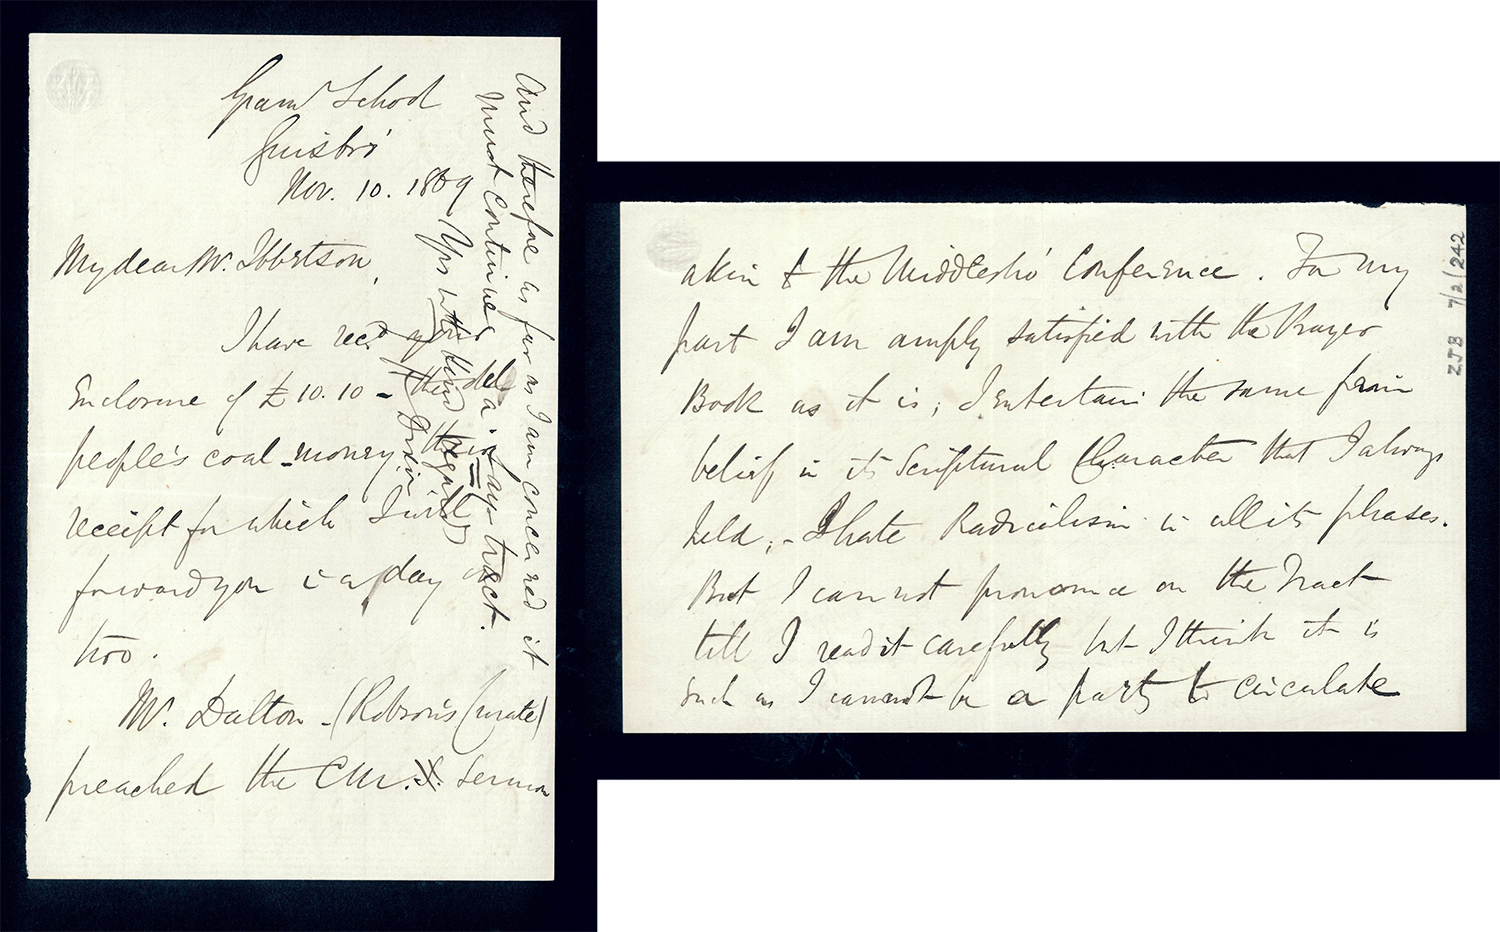 Gram School
Guisbro'
Nov. 10. 1869
My dear Mr. Ibbetson,
I have recd your
Enclosure of £10.10 - the old
people's coal-money, their
receipt for which I will
forward you in a day or
two.
Mr. Dalton - (Robson's Curate)
preached the Ch. Sermon
And therefore as far as I am concerned it
must continue a 'Lay' tract.
Yrs with kind regards
akin to the Middlesbro' Conference. For my
part I am amply satisfied with the Prayer
Book as it is; I entertain the same firm
belief in its Scriptural Character that I always
held; - I hate Radicalism in all its phases.
But I can not pronounce on the Tract
till I read it carefully but I think it is
such as I cannot be a party to circulate
ZJB 7/2/242